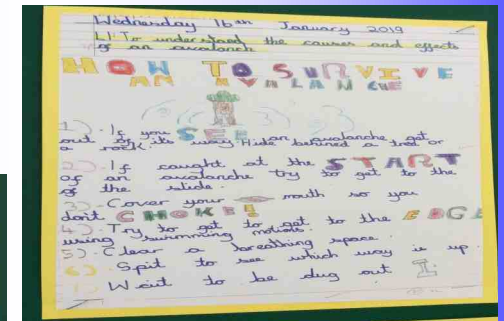 Wednesday 16th January 2019
LI: To understand the causes and effects
of an avalanch
HOW TO SURVIVE
AN AVALANCHE
1). If you SEE an avalanche get
out of its way Hide behined a tree or
a rock.
2). If caught at the START
of an avalanche try to get to the
of the slide.
3). Cover your mouth so you
don't CHOKE!
4). Try to get to get to the EDGE
using swimming motions.
5). Clear a breathing space.
6). Spit to see which way is up.
Wait to be dug out